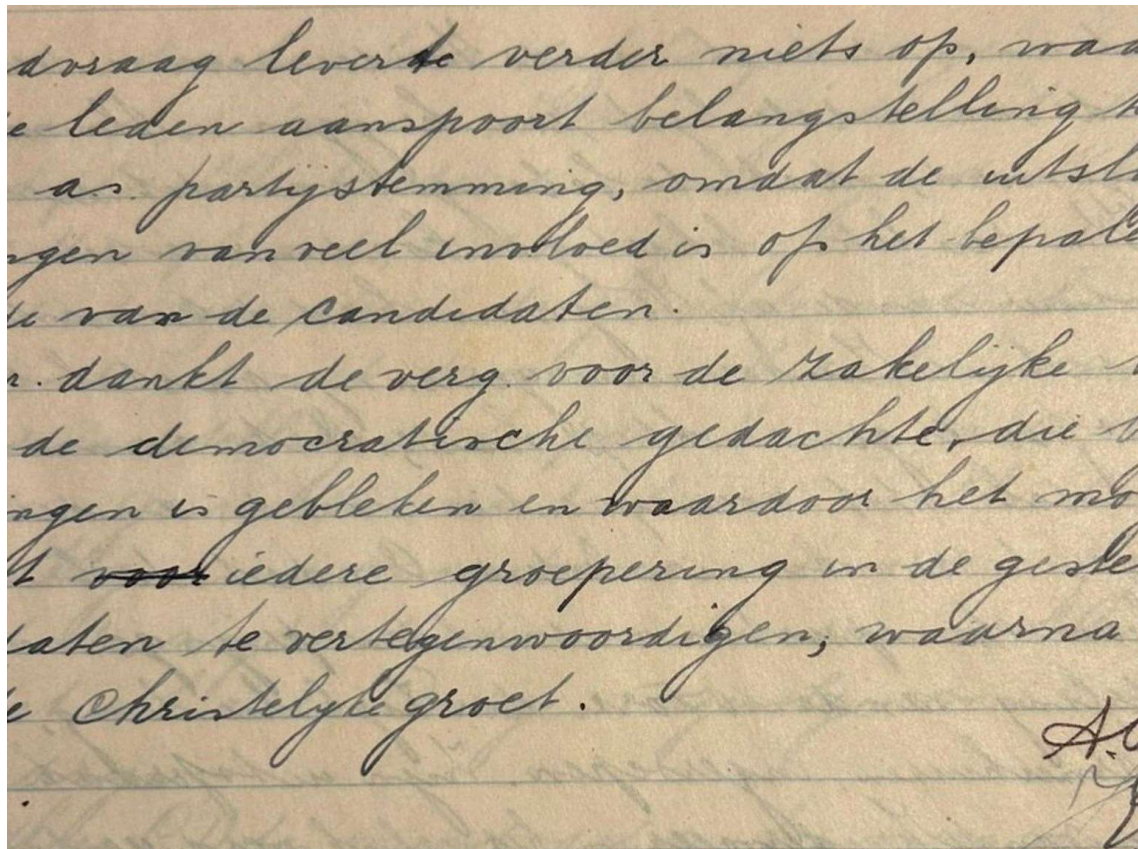 dvraag leverde verder niets op, waa
e leden aanspoort belangstelling t
a.s. partijstemming, omdat de uitsl
ngen van veel invloed is op het bepale
de van de candidaten.
n. dankt de verg. voor de zakelijke
de democratische gedachte, die b
ingen is gebleken en waardoor het mo
t voor iedere groepering in de geste
daten te vertegenwoordigen, waarna
e Christelyke groet.
A.